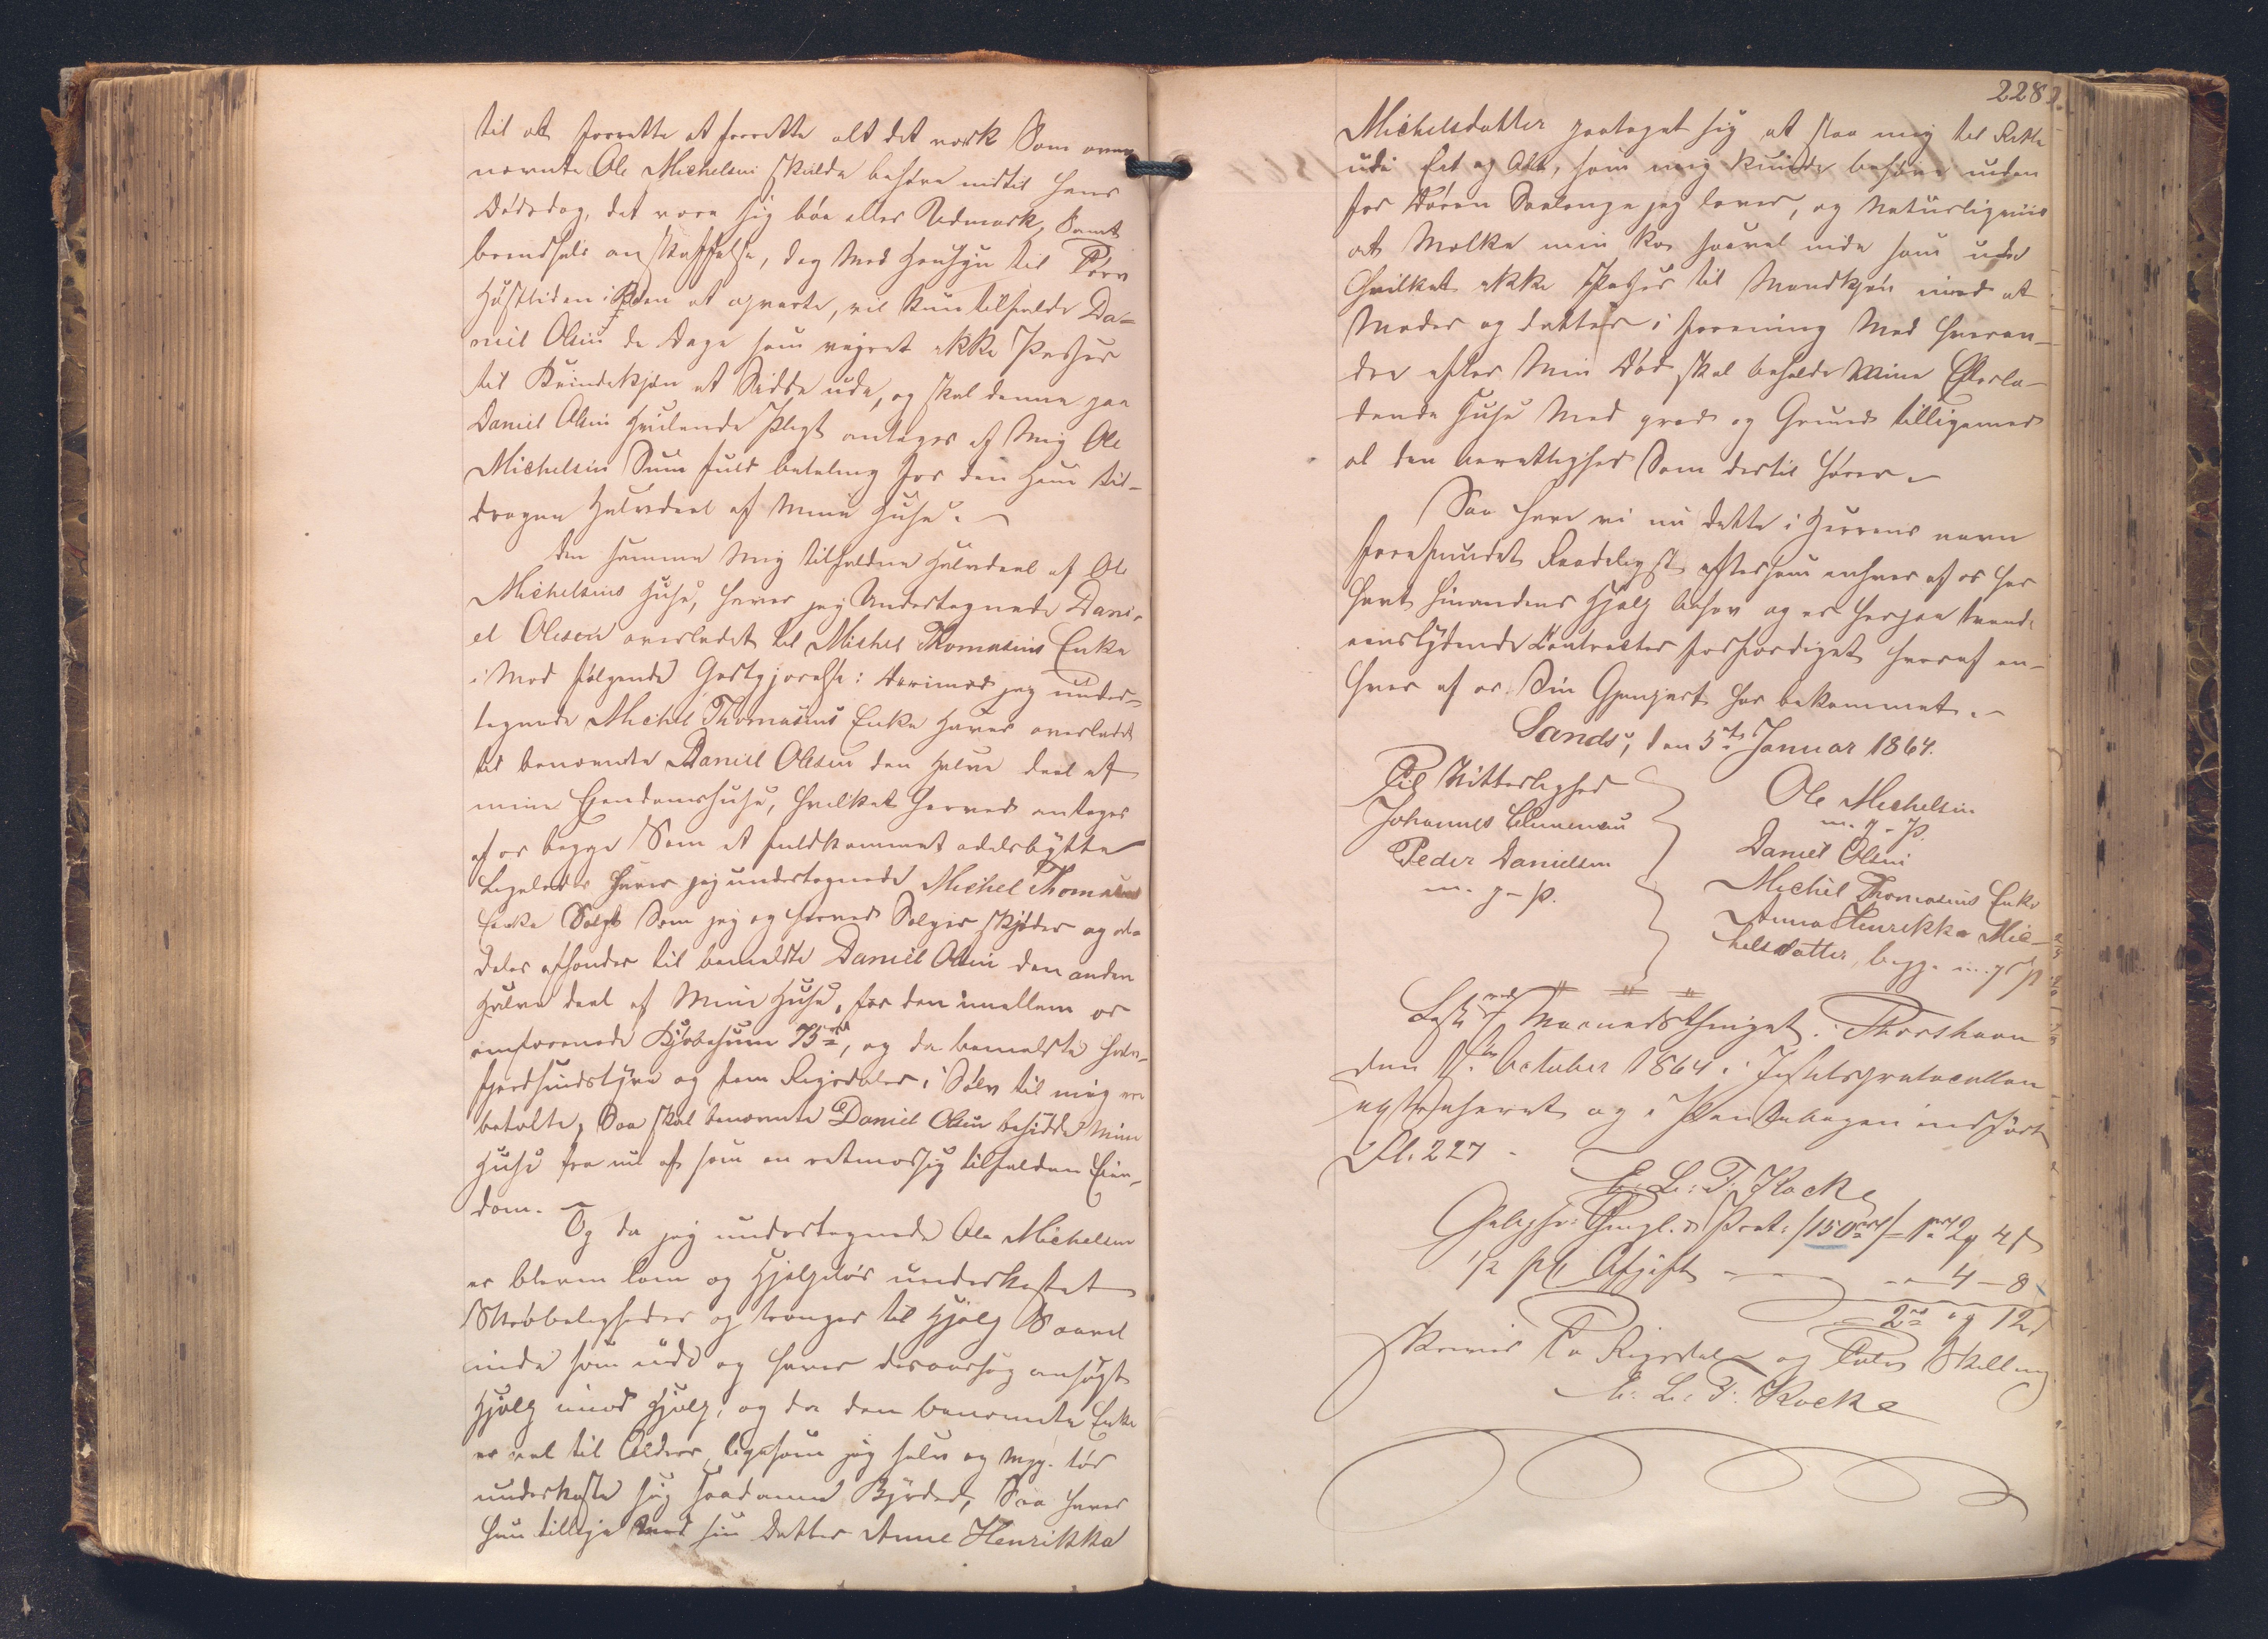 til at forrette at forrette alt det værk Som oven
nævnte Ole Michelsen skulde behøve indtil hans
Dødsdag, det være sig bøe eller Udmark, Samt
brendsels anskaffelse, dog Med Hensyn til Tørv
Høsttiden i at opvarte, vil kun tilfalde Da-
niel Olsen de Dage som veiret ikke Passer
til Kvindekjøn at Sidde ude, og skal denne paa
Daniel Olsen hvilende Pligt antages af Mig Ole
Michelsen Som fuld betaling for den ham til-
dragne Halvdeel af Mine Huse.
Den samme Mig tilfaldne Halvdeel af Ole
Michelsens Huse, haver jeg Undertegnede Dani-
el Olesen overladet til Michel Thomasens Enke
imod følgende Godtgjørelse: Derimod jeg under-
tegnede Michel Thomasens Enke haver overladt
til benævnte Daniel Olesen den halve deel af
mine Eiendomshuse, hvilket herved antages
af os begge Som et fuldkommet adelsbytte
Ligeledes haver jeg undertegnede Michel Thomasens
Enke Solgt Som jeg og herved Selger skjøder og al-
deles afhender til bemeldte Daniel Olsen den anden
Halve deel af Mine Huse, for den imellem os
omforenede Kjøbesum 75 rd, og da bemeldte halv-
fjerdsindstyve og fem Rigsdaler i Sølv til mig ere
betalte, Saa skal benævnte Daniel Olsen besidde Mine
Huse fra nu af som en retmæssig tilfalden Eien-
dom.
Og da jeg undertegnede Ole Michelsen
er bleven lam og Hjelpeløs underkastet
Skrøbeligheder og trænger til Hjelp Saavel
inde som ude og haver desaarsag ansøgt
Hjelp imod Hjelp, og da den benævnte Enke
er vel til Alders, ligesom jeg selv og tør
underkaste sig saadanne Byrder, Saa haver
hun tillige Med sin Datter Anne Henrikka
228
Michelsdatter paataget sig at staa mig til Rette
udi Eet og Alt, som mig kunde behøve uden
for Døren Saalænge jeg lever, og Naturligviis
at Malke min Ko saavel inde som ude
Hvilket ikke Passer til Mandkjøn imod at
Moder og datter i forening Med hveran-
dre efter Min Død skal beholde Mine Efterla-
dende Huse Med grød og Grund tilligemed
al den herrettighed Som dertil hører.
Saa have vi nu dette i Herrens navn
forefundet Raadeligst eftersom enhver af os har
havt hinandens Hjelp behov og er herpaa tvende
eenslydende Contracter forfærdiget hvoraf en-
hver af os Sin Gjenpart har bekommet.
Sandø, den 5te Januar 1864.
Til Vitterlighed
Johannes Clementsen
Peder Danielsen
m. p. p.
Ole Michelsen
m. p. p.
Daniel Olsen
Michel Thomasens Enke
Anna Henrikka Mic-
helsdatter, begge m. p. p.
Læst ved Maanedsthinget i Thorshavn
den October 1864 i Justitsprotocollen
extraheret og i Pantebogen indført
Fl. 227
E. L. T. Kocke
Gebyhr: Thingl. & Prot: /150 rd/ - 1 rd 2 4 s
1/2 pCt Afgift - - - 4 - 8
2 rd " 12 s
Skriver To Rigsdaler og Tolv Skilling
E. L. T. Kocke